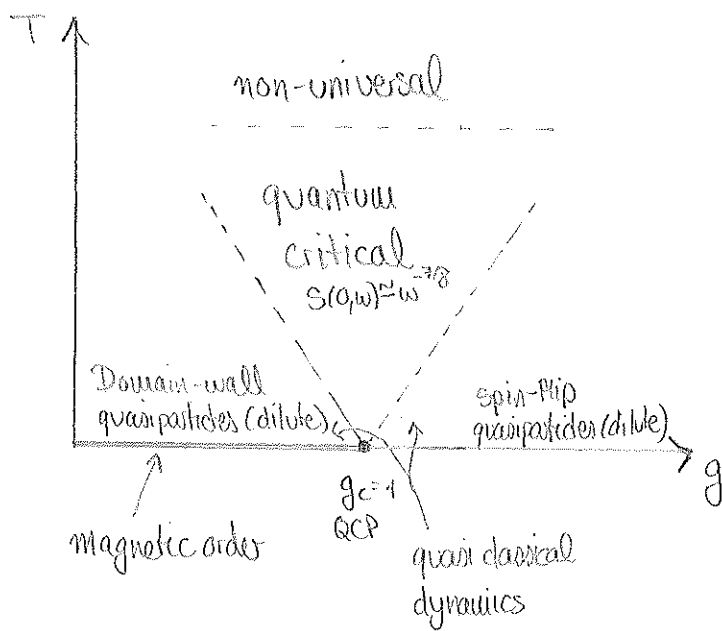 T
non-universal
quantum
critical
S(0,ω)≃ω^-7/8
Domain-wall
quasiparticles (dilute)
spin-flip
quasiparticles (dilute)
g
g_c=1
QCP
magnetic order
quasi classical
dynamics